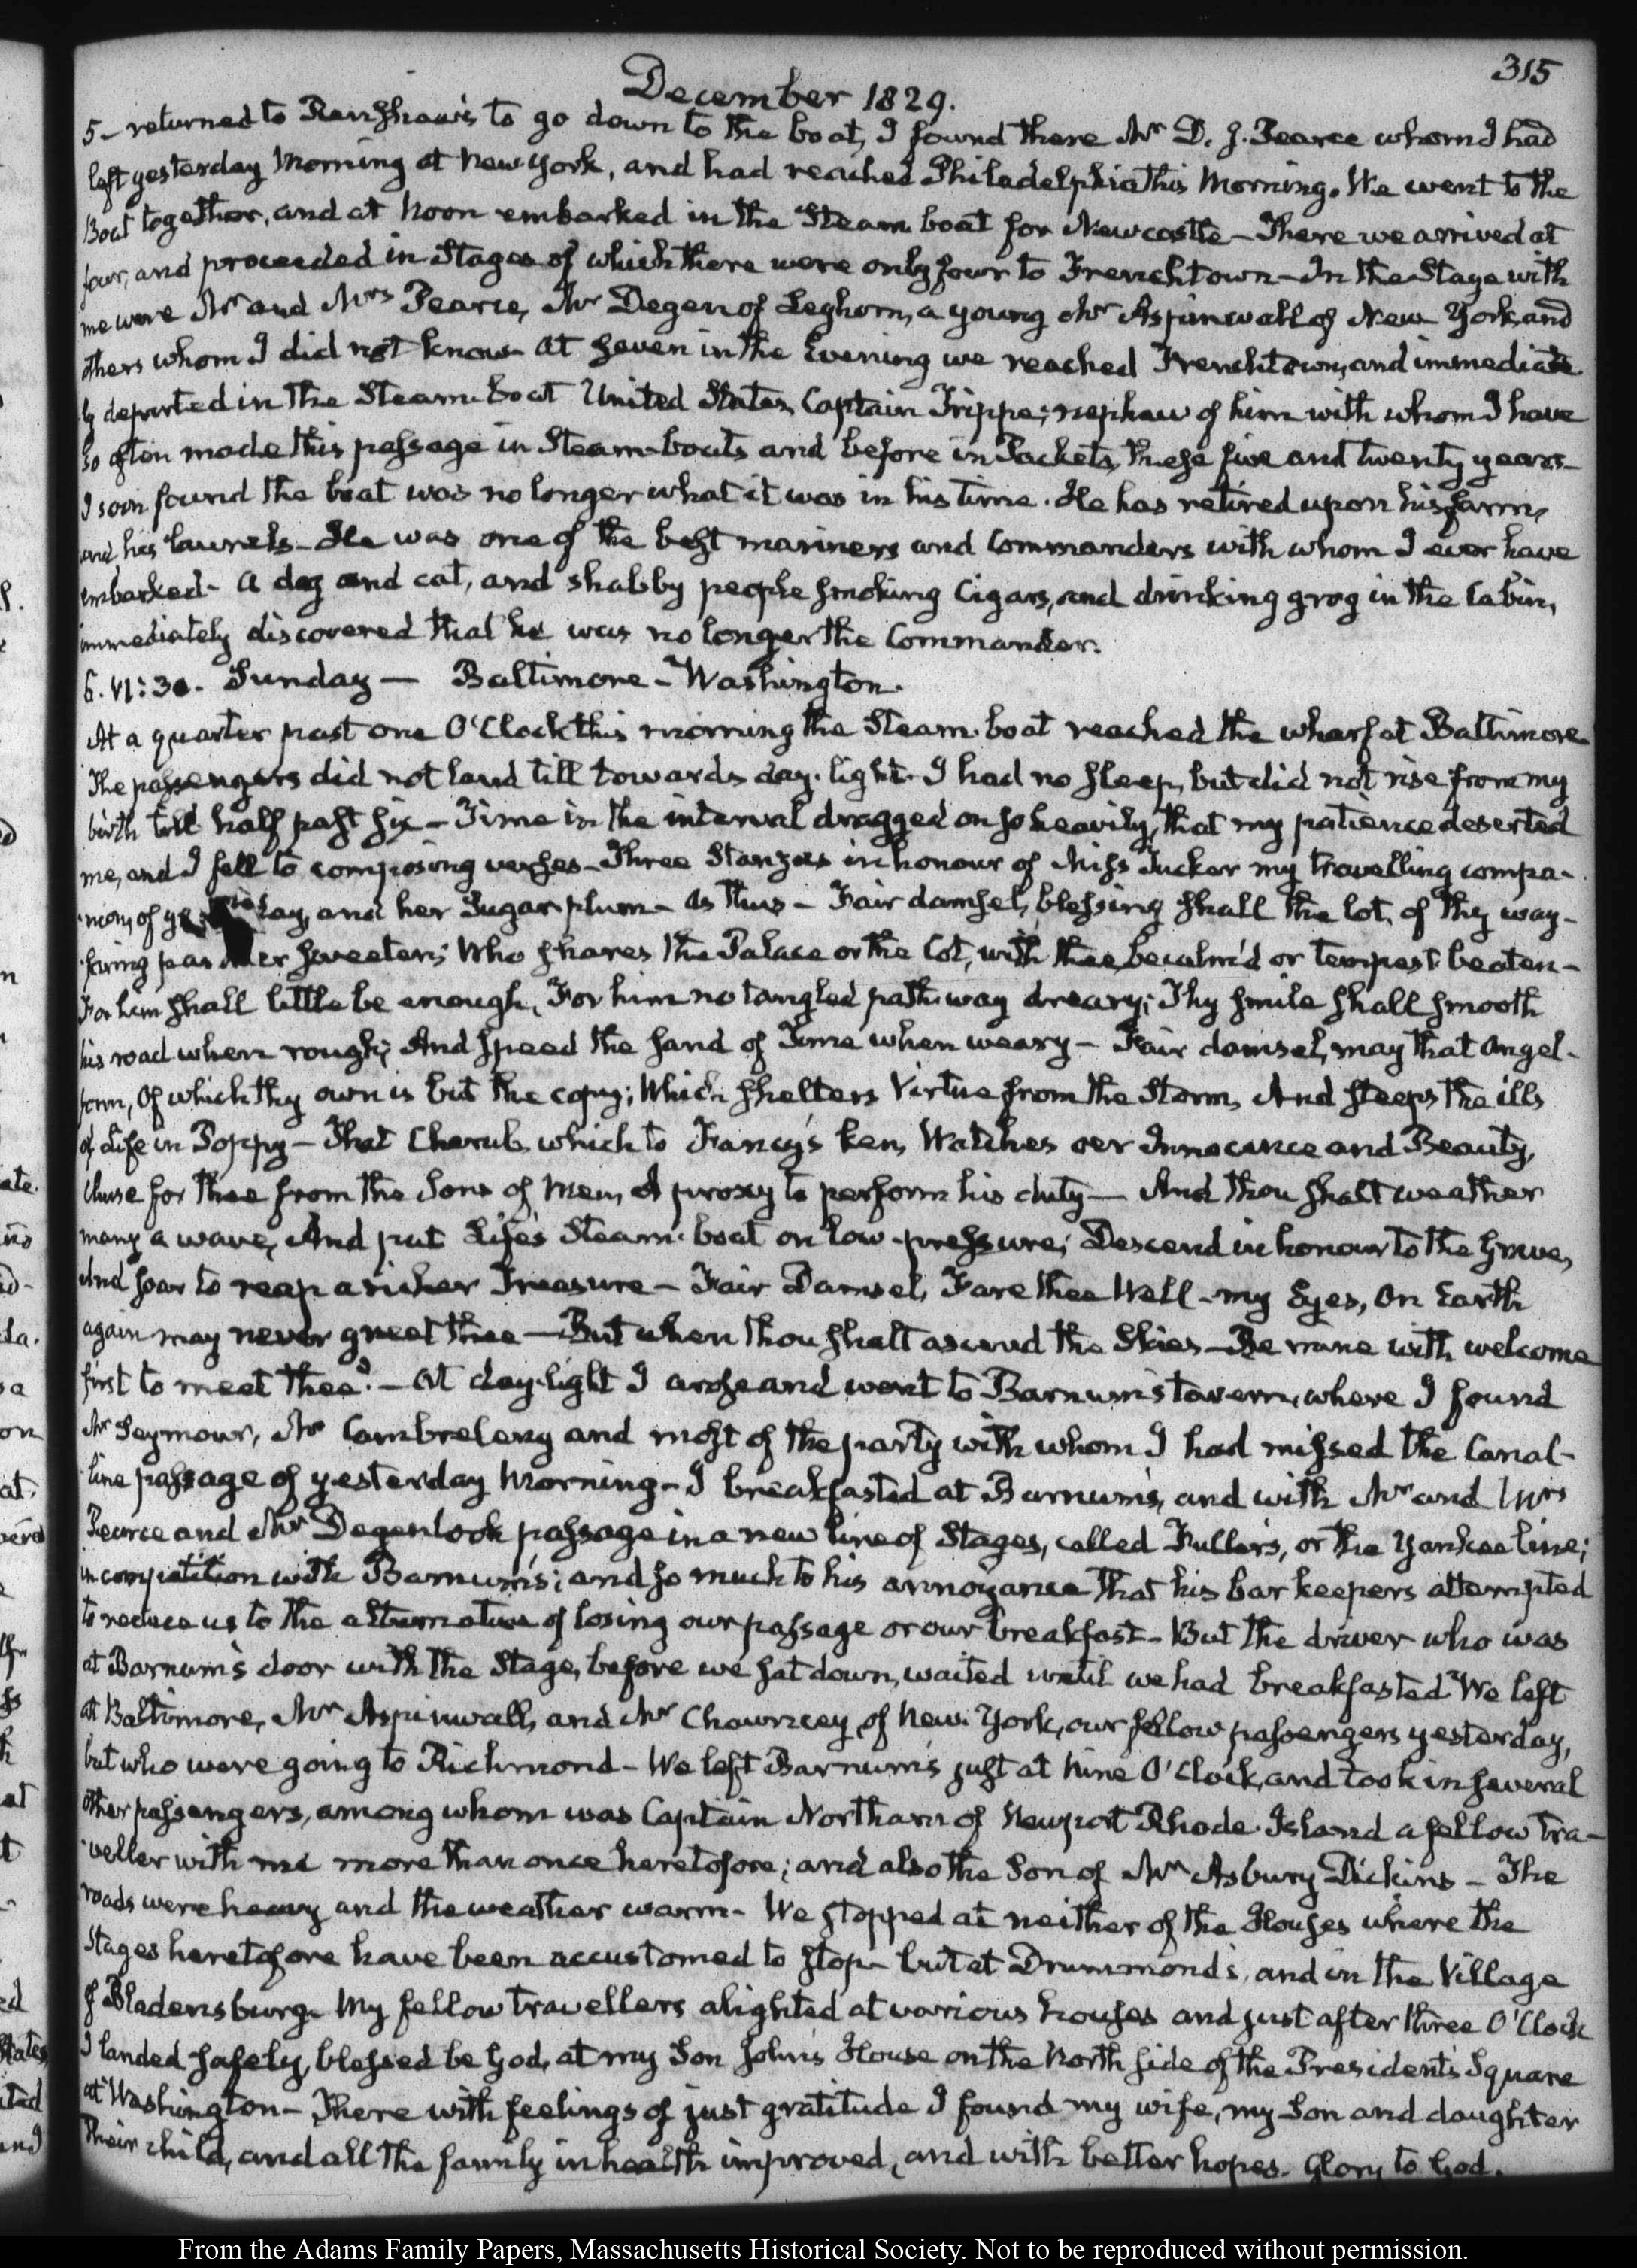 315
December 1829.
5 – returned to Renshaw's to go down to the boat, I found there Mr D. J. Pearce whom I had
left yesterday Morning at New-York, and had reached Philadelphia this Morning. We went to the
Boat together, and at Noon embarked in the Steam boat for Newcastle – There we arrived at
four, and proceeded in Stages of which there were only four to Frenchtown – In the Stage with
me were Mr and Mrs Pearce, Mr Degen of Leghorn, a young Mr Aspinwall of New York, and
others whom I did not know – At seven in the Evening we reached Frenchtown, and immediate
ly departed in the Steam-boat United States, Captain Trippe; nephew of him with whom I have
so often made this passage in Steam-boats and before in Packets, these five and twenty years –
I soon found the boat was no longer what it was in his time. He has retired upon his farm,
and his laurels – He was one of the best mariners and Commanders with whom I ever have
embarked – A dog and cat, and shabby people smoking Cigars, and drinking grog in the Cabin,
immediately discovered that he was no longer the Commander.
6. VI:30. Sunday — Baltimore – Washington.
At a quarter past one O'Clock this morning the Steam-boat reached the wharf at Baltimore
The passengers did not land till towards day-light. I had no sleep, but did not rise from my
birth till half past six – Time in the interval dragged on so heavily, that my patience deserted
me, and I fell to composing verses – Three Stanzas in honour of Miss Tucker my travelling compa-
nion, of day, and her Sugar-plum – As thus – Fair damsel, blessing shall the lot, of thy way-
faring sweeten; Who shares the Palace or the Cot, with thee becalm'd or tempest-beaten –
For him shall little be enough, For him no tangled path-way dreary; Thy smile shall smooth
his road when rough; And speed the sand of Time when weary – Fair damsel, may that angel-
form, Of which thy own is but the copy; Which shelters Virtue from the Storm, And steeps the ills
of Life in Poppy – That Cherub, which to Fancy's ken, Watches oer Innocence and Beauty,
Chuse for thee from the Sons of Men, A proxy to perform his duty — And thou shalt weather
many a wave, And put Life's Steam-boat on low-pressure; Descend in honour to the Grave,
And soar to reap a richer Treasure – Fair Damsel, Fare thee Well – my Eyes, On Earth
again may never greet thee — But when thou shalt ascend the Skies – Be mine with welcome
first to meet thee. – At day-light I arose and went to Barnum's tavern, where I found
Mr Seymour, Mr Cambreleng and most of the party with whom I had missed the Canal-
line passage of yesterday Morning – I breakfasted at Barnum's, and with Mr and Mrs
Pearce and Mr Degen took passage in a new line of Stages, called Fuller's, or the Yankee line;
in competition with Barnum's; and so much to his annoyance that his bar keepers attempted
to reduce us to the alternative of losing our passage or our breakfast – But the driver who was
at Barnum's door with the Stage, before we sat down, waited until we had breakfasted We left
at Baltimore, Mr Aspinwall, and Mr Chowncey of New-York, our fellow passengers yesterday,
but who were going to Richmond – We left Barnum's just at Nine O'Clock, and took in several
other passengers, among whom was Captain Northam of Newport Rhode-Island a fellow tra-
veller with me more than once heretofore; and also the Son of Mr Asbury Dickins – The
roads were heavy and the weather warm – We stopped at neither of the Houses where the
Stages heretofore have been accustomed to stop – but at Drummond's, and in the Village
of Bladensburg – My fellow travellers alighted at various houses and just after three O'Clock
I landed safely, blessed be God, at my Son John's House on the North side of the President's Square
at Washington – There with feelings of just gratitude I found my wife, my Son and daughter
their child, and all the family in health improved, and with better hopes – Glory to God.
From the Adams Family Papers, Massachusetts Historical Society. Not to be reproduced without permission.